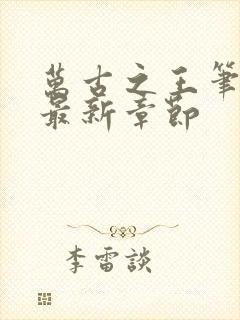 萬古之王筆
最新章節
李雷談